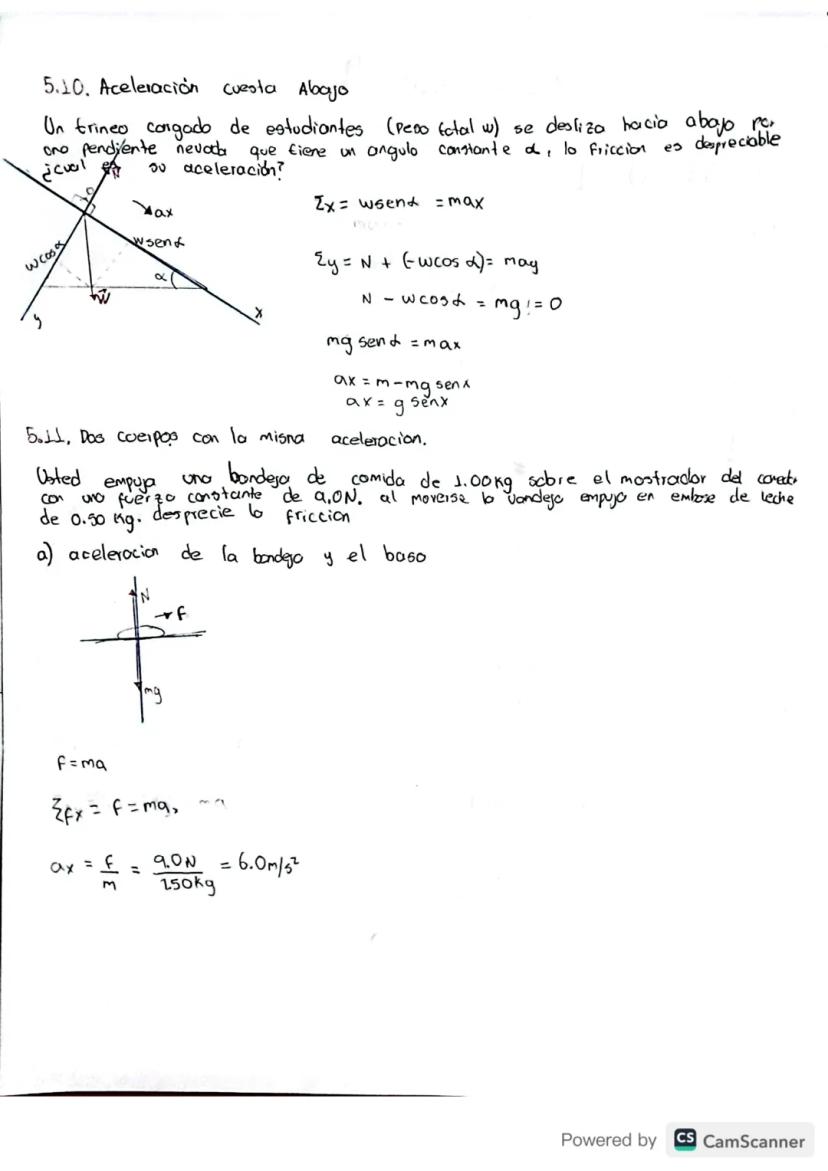 5.10. Aceleración cuesta Abajo
Un trineo cargado de estudiantes (Peso total w) se desliza hacia abajo por
una pendiente nevada que tiene un angulo constante α, la friccion es despreciable
¿cual es su aceleración?
N
ax
wcosα
wsenα
α
w
y
x
Σx = wsenα = max
Σy = N + (-wcos α) = may
N - wcosα = mg != 0
mg senα = max
ax = m-mg senx
ax = g senx
5.11, Dos cuerpos con la misma aceleracion.
Usted empuja una bandeja de comida de 1.00Kg sobre el mostrador del
con una fuerza constante de 9.0N. al moverse la vandeja empuja en embase de leche
de 0.50 Kg. desprecie la friccion
a) aceleracion de la bandeja y el baso
N
f
mg
f = ma
Σfx = f = ma,
ax = f/m = 9.0N/1.50Kg = 6.0m/s²
Powered by CS CamScanner